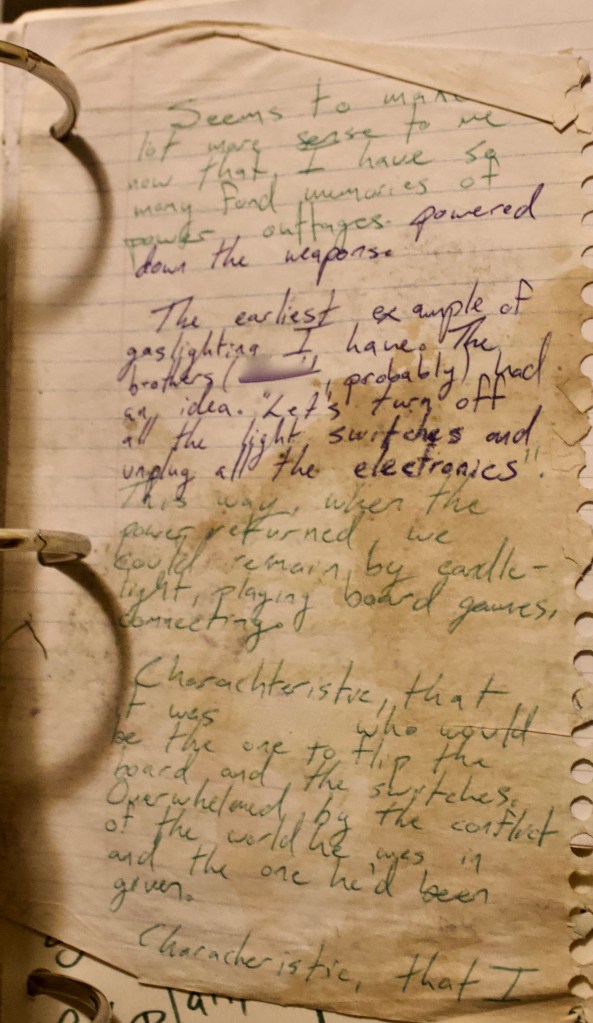 Seems to make
lot more sense to me
now that, I have so
many fond memories of
power outtages. powered
down the weapons.
The earliest example of
gaslighting I, have. The
brothers ( , probably) had
an idea. "Let's turn off
all the light switches and
unplug all the electronics".
This way, when the
power returned, we
could remain by candle-
light, playing board games,
connecting.
Charachteristic, that
it was who would
be the one to flip the
board and the switches.
Overwhelmed by the conflict
of the world he was in
and the one he'd been
given.
Characheristic, that I